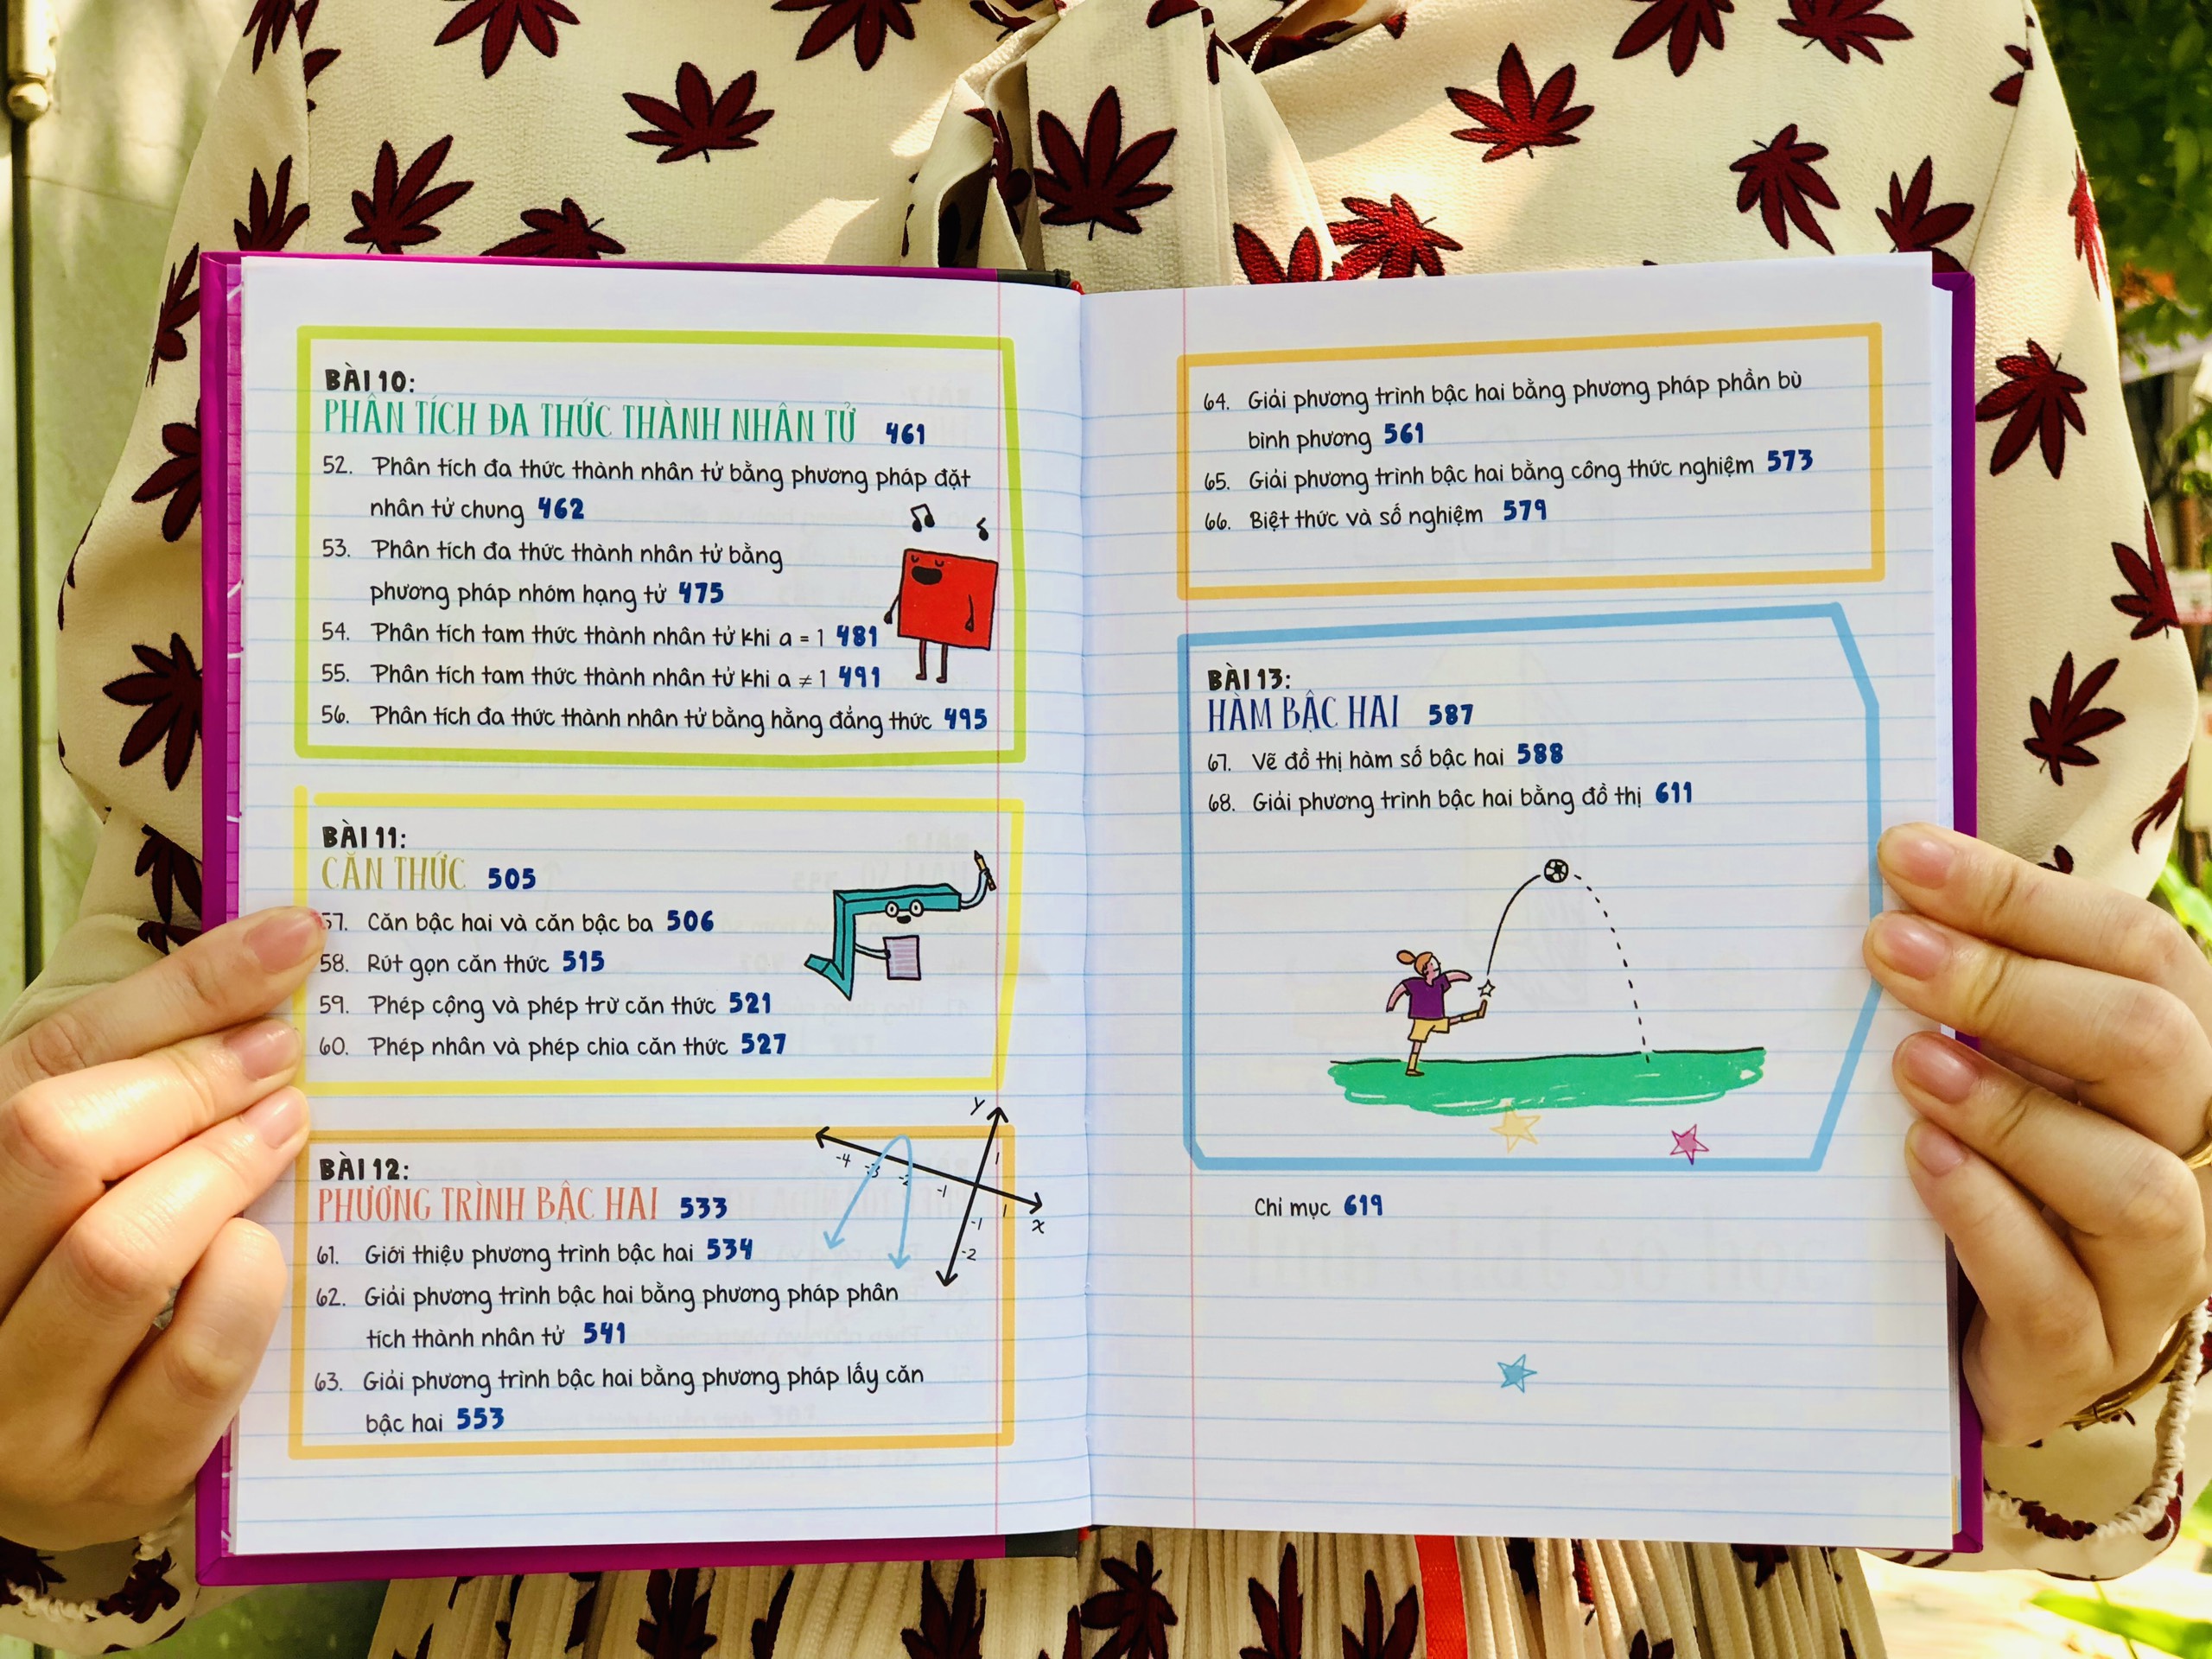 BÀI 10:
PHÂN TÍCH ĐA THỨC THÀNH NHÂN TỬ 461
52. Phân tích đa thức thành nhân tử bằng phương pháp đặt
nhân tử chung 462
53. Phân tích đa thức thành nhân tử bằng
phương pháp nhóm hạng tử 475
54. Phân tích tam thức thành nhân tử khi a = 1 481
55. Phân tích tam thức thành nhân tử khi a ≠ 1 491
56. Phân tích đa thức thành nhân tử bằng hằng đẳng thức 495
BÀI 11:
CĂN THỨC 505
57. Căn bậc hai và căn bậc ba 506
58. Rút gọn căn thức 515
59. Phép cộng và phép trừ căn thức 521
60. Phép nhân và phép chia căn thức 527
BÀI 12:
PHƯƠNG TRÌNH BẬC HAI 533
61. Giới thiệu phương trình bậc hai 534
62. Giải phương trình bậc hai bằng phương pháp phân
tích thành nhân tử 541
63. Giải phương trình bậc hai bằng phương pháp lấy căn
bậc hai 553
y
1
-4 -3 -2 -1 1 x
-1
-2
64. Giải phương trình bậc hai bằng phương pháp phần bù
bình phương 561
65. Giải phương trình bậc hai bằng công thức nghiệm 573
66. Biệt thức và số nghiệm 579
BÀI 13:
HÀM BẬC HAI 587
67. Vẽ đồ thị hàm số bậc hai 588
68. Giải phương trình bậc hai bằng đồ thị 611
Chỉ mục 619